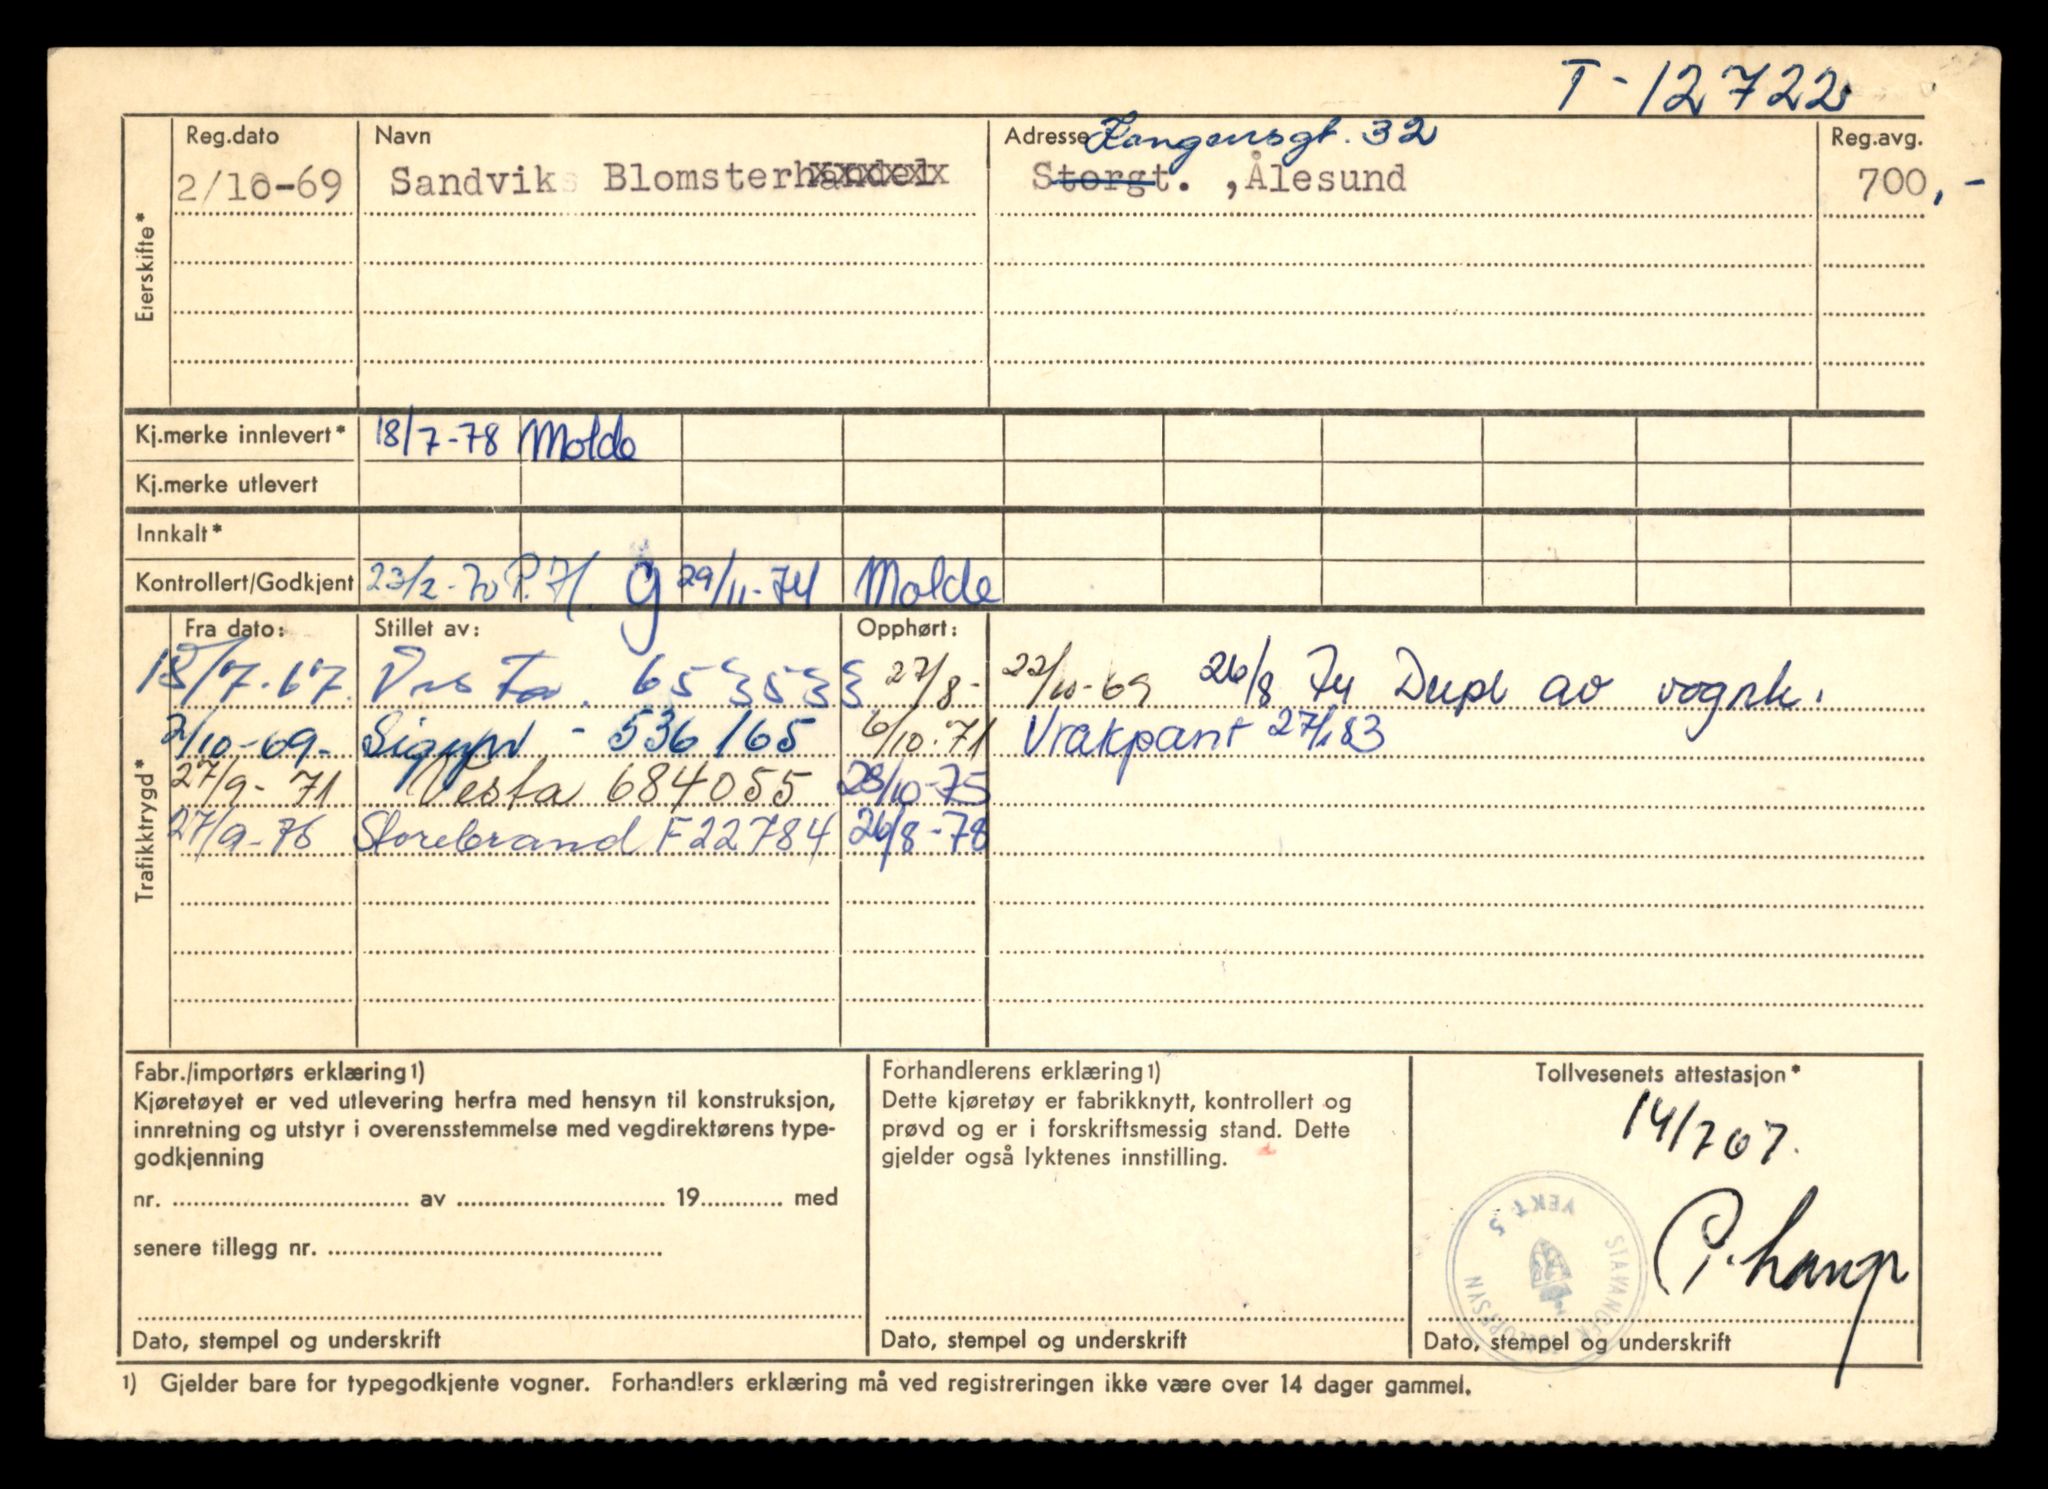 T-12722
Reg.dato Navn Adresse Kongensgt. 32 Reg.avg.
2/10-69 Sandviks Blomsterhandel Storgt. ,Ålesund 700,-
Eierskifte*
Kj.merke innlevert* 18/7-78 Molde
Kj.merke utlevert
Innkalt*
Kontrollert/Godkjent 23/2-70 P.H. g 29/11-74 Molde
Trafikktrygd*
Fra dato: Stillet av: Opphørt:
15/7-67. Vesta. 27/8- 22/10-69 26/8 74 Dupl av vognk.
2/10-69- - 536165 6/10.71 Vrakpant 27/1 83
27/9-71 Vesta 684055 28/10-75
27/9-76 Storebrand F22784 26/8-78
Fabr./importørs erklæring1)
Kjøretøyet er ved utlevering herfra med hensyn til konstruksjon,
innretning og utstyr i overensstemmelse med vegdirektørens type-
godkjenning
nr. av 19 med
senere tillegg nr.
Dato, stempel og underskrift
Forhandlerens erklæring1)
Dette kjøretøy er fabrikknytt, kontrollert og
prøvd og er i forskriftsmessig stand. Dette
gjelder også lyktenes innstilling.
Dato, stempel og underskrift
Tollvesenets attestasjon*
14/7 67.
STAVANGER TOLLOPPSYN
VEKT S
Dato, stempel og underskrift
1) Gjelder bare for typegodkjente vogner. Forhandlers erklæring må ved registreringen ikke være over 14 dager gammel.